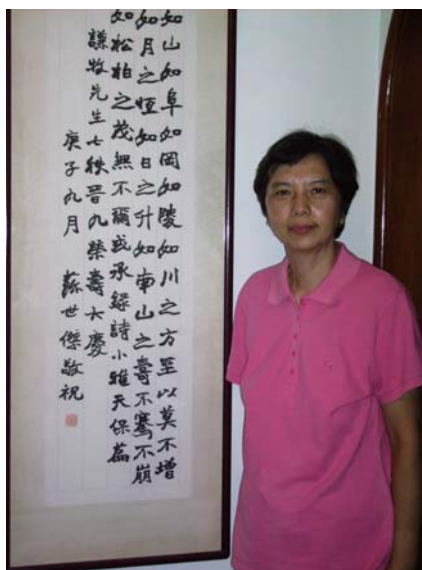 如山如阜如岡如陵如川之方至以莫不增
如月之恒如日之升如南山之壽不騫不崩
如松柏之茂無不爾或承錄詩小雅天保篇
謙牧先生七秩晉九榮壽大慶
庚子九月 蘇世傑敬祝